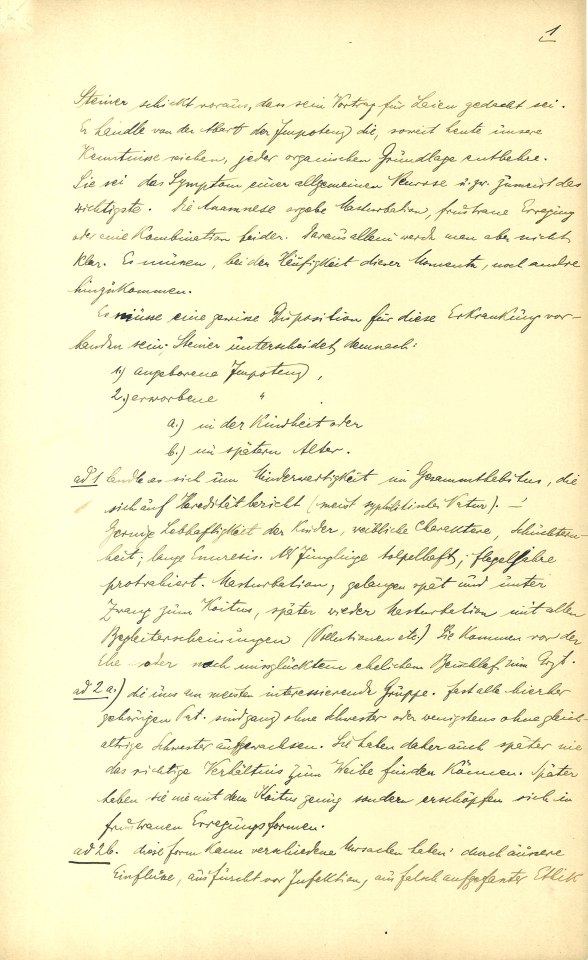 1
Steiner schickt voraus, dass sein Vortrag für Laien gedacht sei.
Er handle von der Abart der Impotenz die, soweit heute unsere
Kenntnisse reichen, jeder organischen Grundlage entbehre.
Sie sei das Symptom einer allgemeinen Neurose u. zw. zumeist das
wichtigste. Die Anamnese ergebe Masturbation, frustrane Erregung
oder eine Kombination beider. Daraus allein werde man aber nicht
klar. Es müssen, bei der Häufigkeit dieser Momente, noch andre
hinzukommen.
Es müsse eine gewisse Disposition für diese Erkrankung vor-
handen sein; Steiner unterscheidet demnach:
1.) angeborene Impotenz,
2.) erworbene "
a.) in der Kindheit oder
b.) im spätern Alter.
ad 1 handle es sich um Minderwertigkeit im Gesammthabitus, die
sich auf Heredität bezieht (meist syphilitischer Natur). —
Geringe Lebhaftigkeit der Kinder, weibliche Charaktere, Schüchtern-
heit; lange Enuresis. Als Jünglinge tolpelhaft; Flegeljahre
protrahiert. Masturbation; gelangen spät und unter
Zwang zum Koitus, später wieder Masturbation mit allen
Begleiterscheinungen (Pollutionen etc.) Sie kommen vor der
Ehe oder nach missglücktem ehelichem Beischlaf zum Arzt.
ad 2 a.) die uns am meisten interessierende Gruppe. Fast alle hierher
gehörigen Pat. sind ganz ohne Schwester oder wenigstens ohne gleich-
altrige Schwester aufgewachsen. Sie haben daher auch später nie
das richtige Verhältnis zum Weibe finden können. Später
haben sie nie mit dem Koitus genug sondern erschöpfen sich in
frustranen Erregungsformen.
ad 2 b. diese Form kann verschiedene Ursachen haben: durch äussere
Einflüsse, aus Furcht vor Infektion, aus falsch aufgefasster Ethik